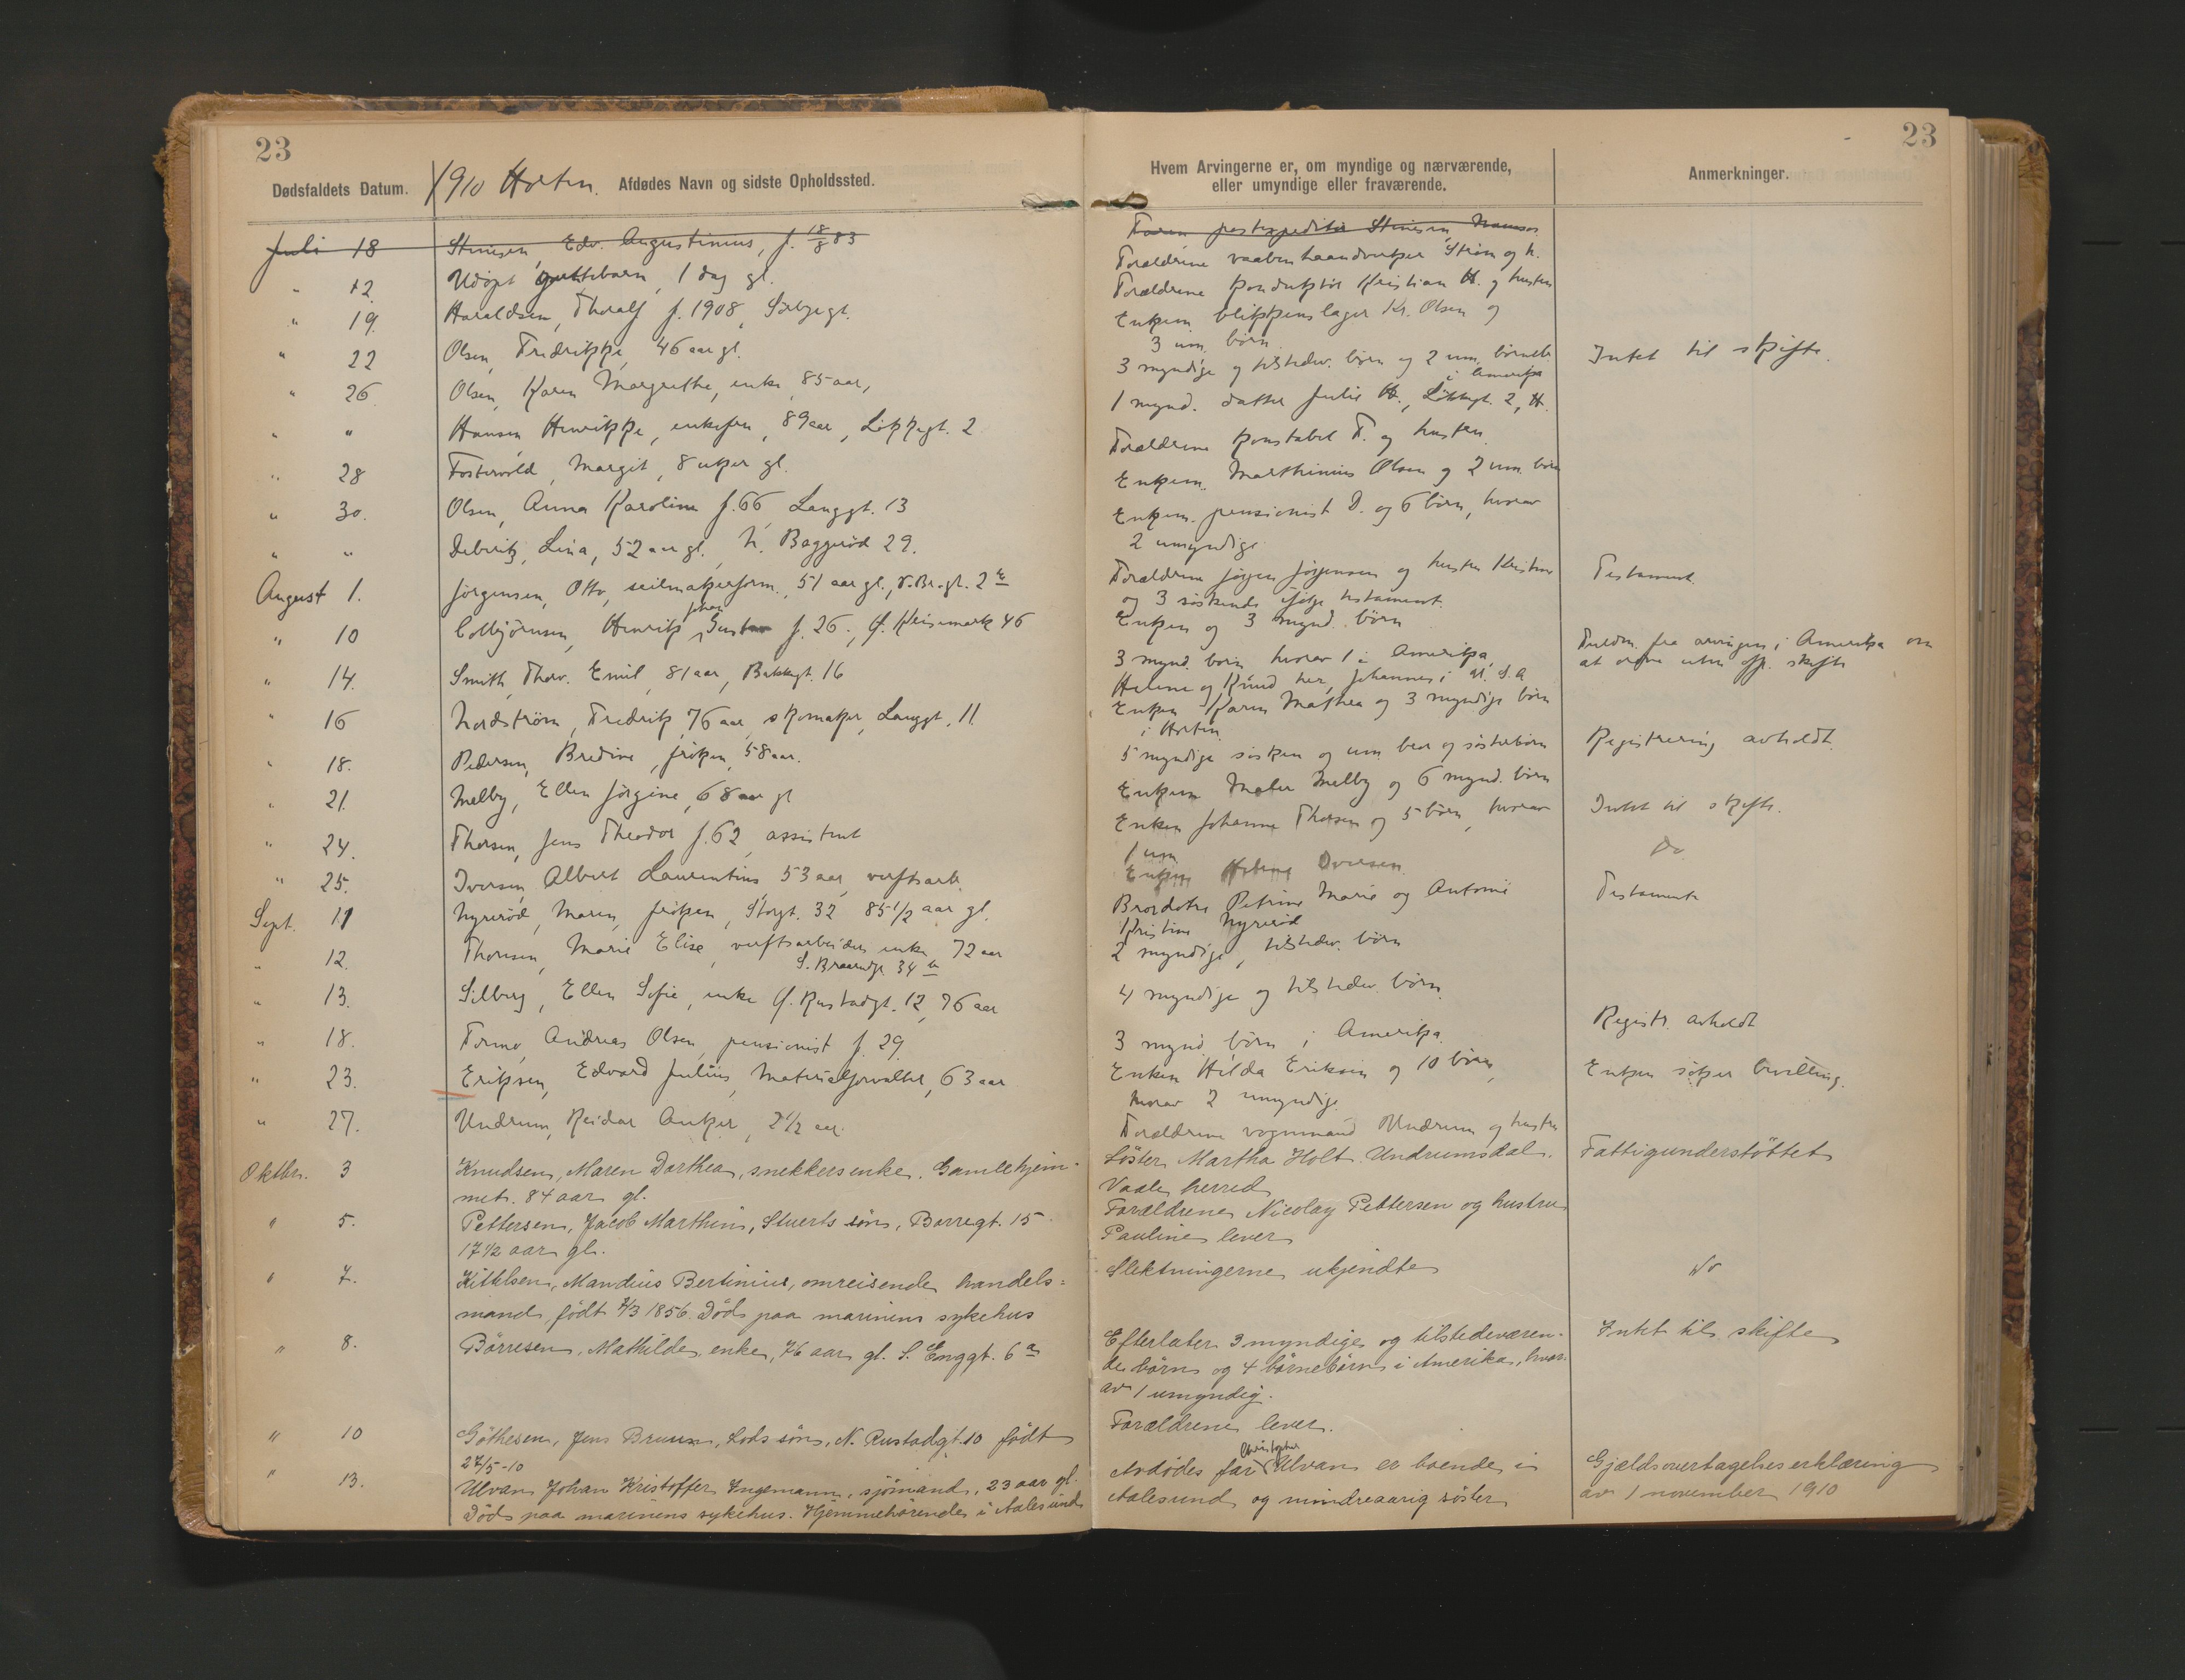 23
23
Dødsfaldets Datum.
1910 Horten. Afdødes Navn og sidste Opholdssted.
Hvem Arvingerne er, om myndige og nærværende,
eller umyndige eller fraværende.
Anmerkninger.
Juli 18 Stinesen, Edv. Augustinius, f. 18/8 83
Faren postexpeditør Stinesen,
" 12. Udøpt guttebarn, 1 dag gl.
Forældrene vaabenhaandverker Strøm og h.
" 19. Haraldsen, Thoralf f. 1908,
Forældrene konduktør Kristian H. og hustru
" 22 Olsen, Fredrikke, 46 aar gl.
Enkem. blikkenslager Kr. Olsen og
3 um. børn
Intet til skifte.
" 26. Olsen, Karen Margrethe, enke, 85 aar,
3 myndige og tilstedev. børn og 2 um. børneb.
i Amerika
" " Hansen Henrikke, enkefru, 89 aar, Løkkegt. 2
1 mynd. datter Julie H., Løkkegt. 2, H.
" 28 Fostervold, Margit, 8 uker gl.
Forældrene konstabel F. og hustru.
" 30. Olsen, Anna Karoline f. 66 Langgt. 13
Enkem. Marthinius Olsen og 2 um. børn
" " Debritz, Lina, 52 aar gl. N. Baggerød 29.
Enkem. pensionist D. og 6 børn, hvorav
2 umyndige
August 1. Jørgensen, Otto, seilmakerform., 51 aar gl.,
Forældrene Jørgen Jørgensen og hustru Kristine
og 3 søskende ifølge testament.
Testament.
" 10 Colbjørnsen, Henrik Johan Gustav f. 26.,
Enken og 3 mynd. børn
" 14. Smith, Thorv. Emil, 81 aar, Bakkegt. 16
3 mynd. børn hvorav 1 i Amerika,
Helene og Knud her, Johannes i
Fuldm. fra arvingen i Amerika om
at ordne uten off. skifte
" 16 Nordstrøm, Fredrik, 76 aar, skomaker, Langgt. 11.
Enken Karen Mathea og 3 myndige børn
i Horten.
" 18. Pedersen, Bredine, frøken, 58 aar.
5 myndige søsken og um. bror og søsterbørn
Registrering avholdt.
" 21. Melby, Ellen Jørgine, 68 aar gl
Enkem. Maler Melby og 6 mynd. børn
" 24. Thorsen, Jens Theodor f. 62, assistent
Enken Johanne Thorsen og 5 børn, hvorav
1 um
Intet til skifte.
" 25. Iversen, Albert Laurentius 53 aar, verftsarb.
Enken Iversen
Do
Sept. 11 Nyrerød, Maren, frøken, Storgt. 32 85 1/2 aar gl.
Brordøtre Petrine Marie og Antonie
Kristine Nyrerød
Testamente
" 12. Thoresen, Marie Elise, verftsarbeiders enke, 72 aar
2 myndige, tilstedev. børn
" 13. Silberg, Ellen Sofie, enke Ø. Rustadgt. 12, 76 aar
4 myndige og tilstedev. børn.
" 18. Formo, Andreas Olsen, pensionist f. 29.
3 mynd. børn i Amerika.
Registr. avholdt
" 23. Eriksen, Edvard Julius, Materialforvalter, 63 aar
Enken Hilda Eriksen og 10 børn,
hvorav 2 umyndige.
Enken søker bevilling.
" 27. Undrum, Reidar Anker, 2 1/2 aar.
Forældrene vognmand Undrum og hustru
Oktbr. 3 Knudsen, Maren Dorthea, snekkersenke. Gamlehjem-
met. 84 aar gl.
Søster Martha Holt. Undrumsdal.
Vaale herred
Fattigunderstöttet
" 5. Pettersen, Jacob Marthin, Stuerts søn, Borregt. 15.
17 1/2 aar gl.
Forældrene Nicolay Pettersen og hustru
Pauline lever
" 7. Kittilsen, Mandius Bertinius, omreisende handels-
mand, født 7/3 1856. Död paa marinens sykehus
Slektningerne ukjendte
do
" 8. Börresen, Mathilde, enke, 76 aar gl. S. Enggt. 6 a
Efterlater 3 myndige og tilstedeværen-
de børn og 4 børnebørn i Amerika, hvor-
av 1 umyndig.
Intet til skifte
" 10 Göthesen, Jens Bruun, Lods søn, N. Rustadgt. 10 født
27/5-10
Forældrene lever.
" 13. Ulvan Johan Kristoffer Ingemann, sjömand, 23 aar gl.
Död paa marinens sykehus. Hjemmehörende i Aalesund
Avdödes far Christopher Ulvan er boende i
Aalesund og mindreaarig søster
Gjældsovertagelseserklæring
av 1 november 1910